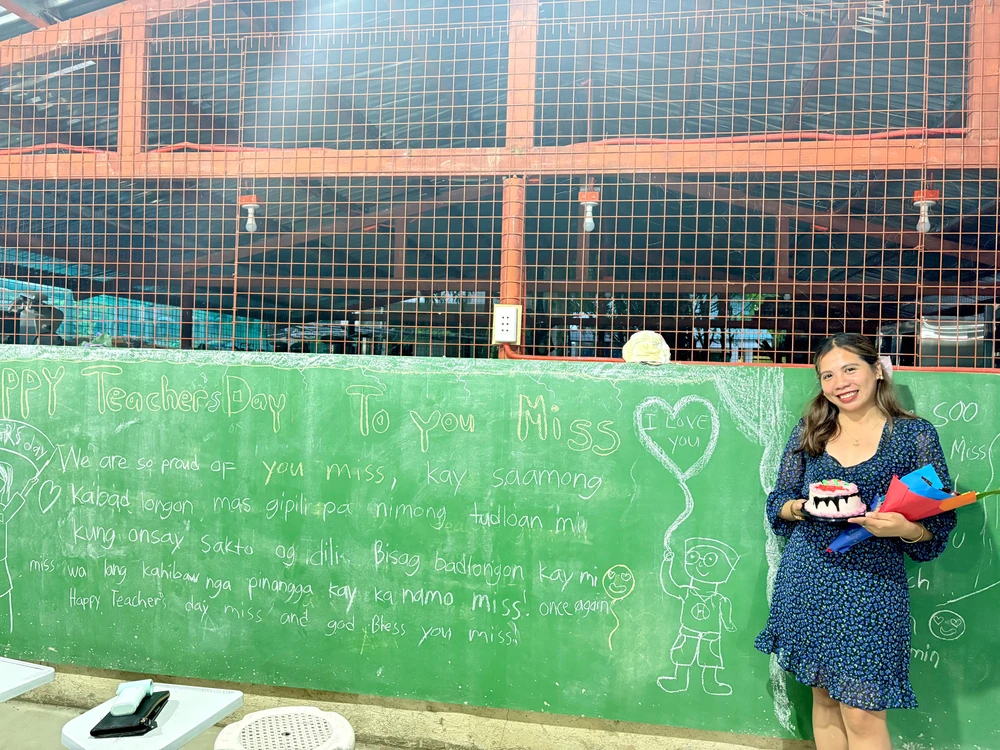 PPY Teacher's Day To you Miss
We are so proud of you miss, kay saamong
kabad longon mas gipili pa nimong tudloan mi
kung onsay sakto og dili. Bisag badlongon kay mi
miss wa lang kahibaw nga pinangga kay ka namo miss! once again
Happy Teacher's day miss and god Bless you miss!
I LOVE
you
H
soo
Miss
u
ch
min